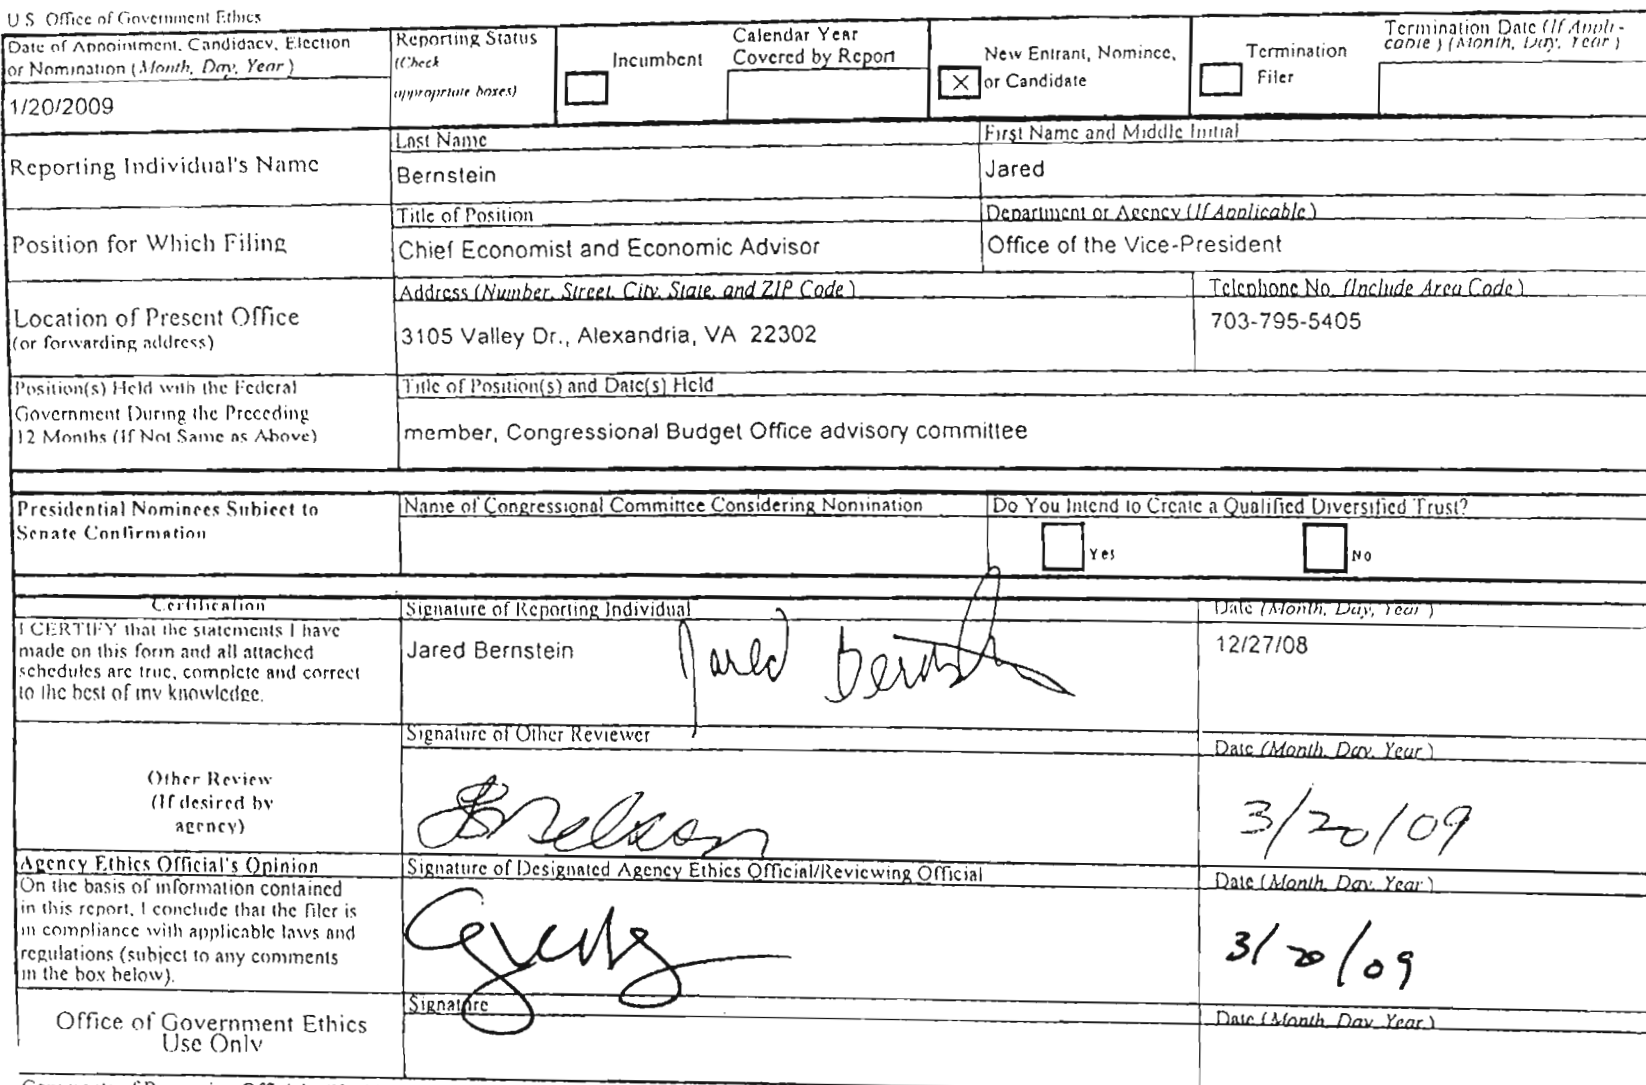 U S Office of Government Ethics
Date of Appointment, Candidacy, Election or Nomination (Month, Day, Year)
1/20/2009
Reporting Status
(Check appropriate boxes)
Incumbent
Calendar Year
Covered by Report
X New Entrant, Nominee,
or Candidate
Termination
Filer
Termination Date (If Appli-
cable) (Month, Day, Year)
Reporting Individual's Name
Last Name
Bernstein
First Name and Middle Initial
Jared
Position for Which Filing
Title of Position
Chief Economist and Economic Advisor
Department or Agency (If Applicable)
Office of the Vice-President
Location of Present Office
(or forwarding address)
Address (Number, Street, City, State, and ZIP Code)
3105 Valley Dr., Alexandria, VA 22302
Telephone No. (Include Area Code)
703-795-5405
Position(s) Held with the Federal
Government During the Preceding
12 Months (If Not Same as Above)
Title of Position(s) and Date(s) Held
member, Congressional Budget Office advisory committee
Presidential Nominees Subject to
Senate Confirmation
Name of Congressional Committee Considering Nomination
Do You Intend to Create a Qualified Diversified Trust?
Yes
No
Certification
I CERTIFY that the statements I have
made on this form and all attached
schedules are true, complete and correct
to the best of my knowledge.
Signature of Reporting Individual
Jared Bernstein
Jared Bernstein
Date (Month, Day, Year)
12/27/08
Other Review
(If desired by
agency)
Signature of Other Reviewer
Date (Month, Day, Year)
3/20/09
Agency Ethics Official's Opinion
On the basis of information contained
in this report, I conclude that the filer is
in compliance with applicable laws and
regulations (subject to any comments
in the box below).
Signature of Designated Agency Ethics Official/Reviewing Official
Date (Month, Day, Year)
3/20/09
Office of Government Ethics
Use Only
Signature
Date (Month, Day, Year)